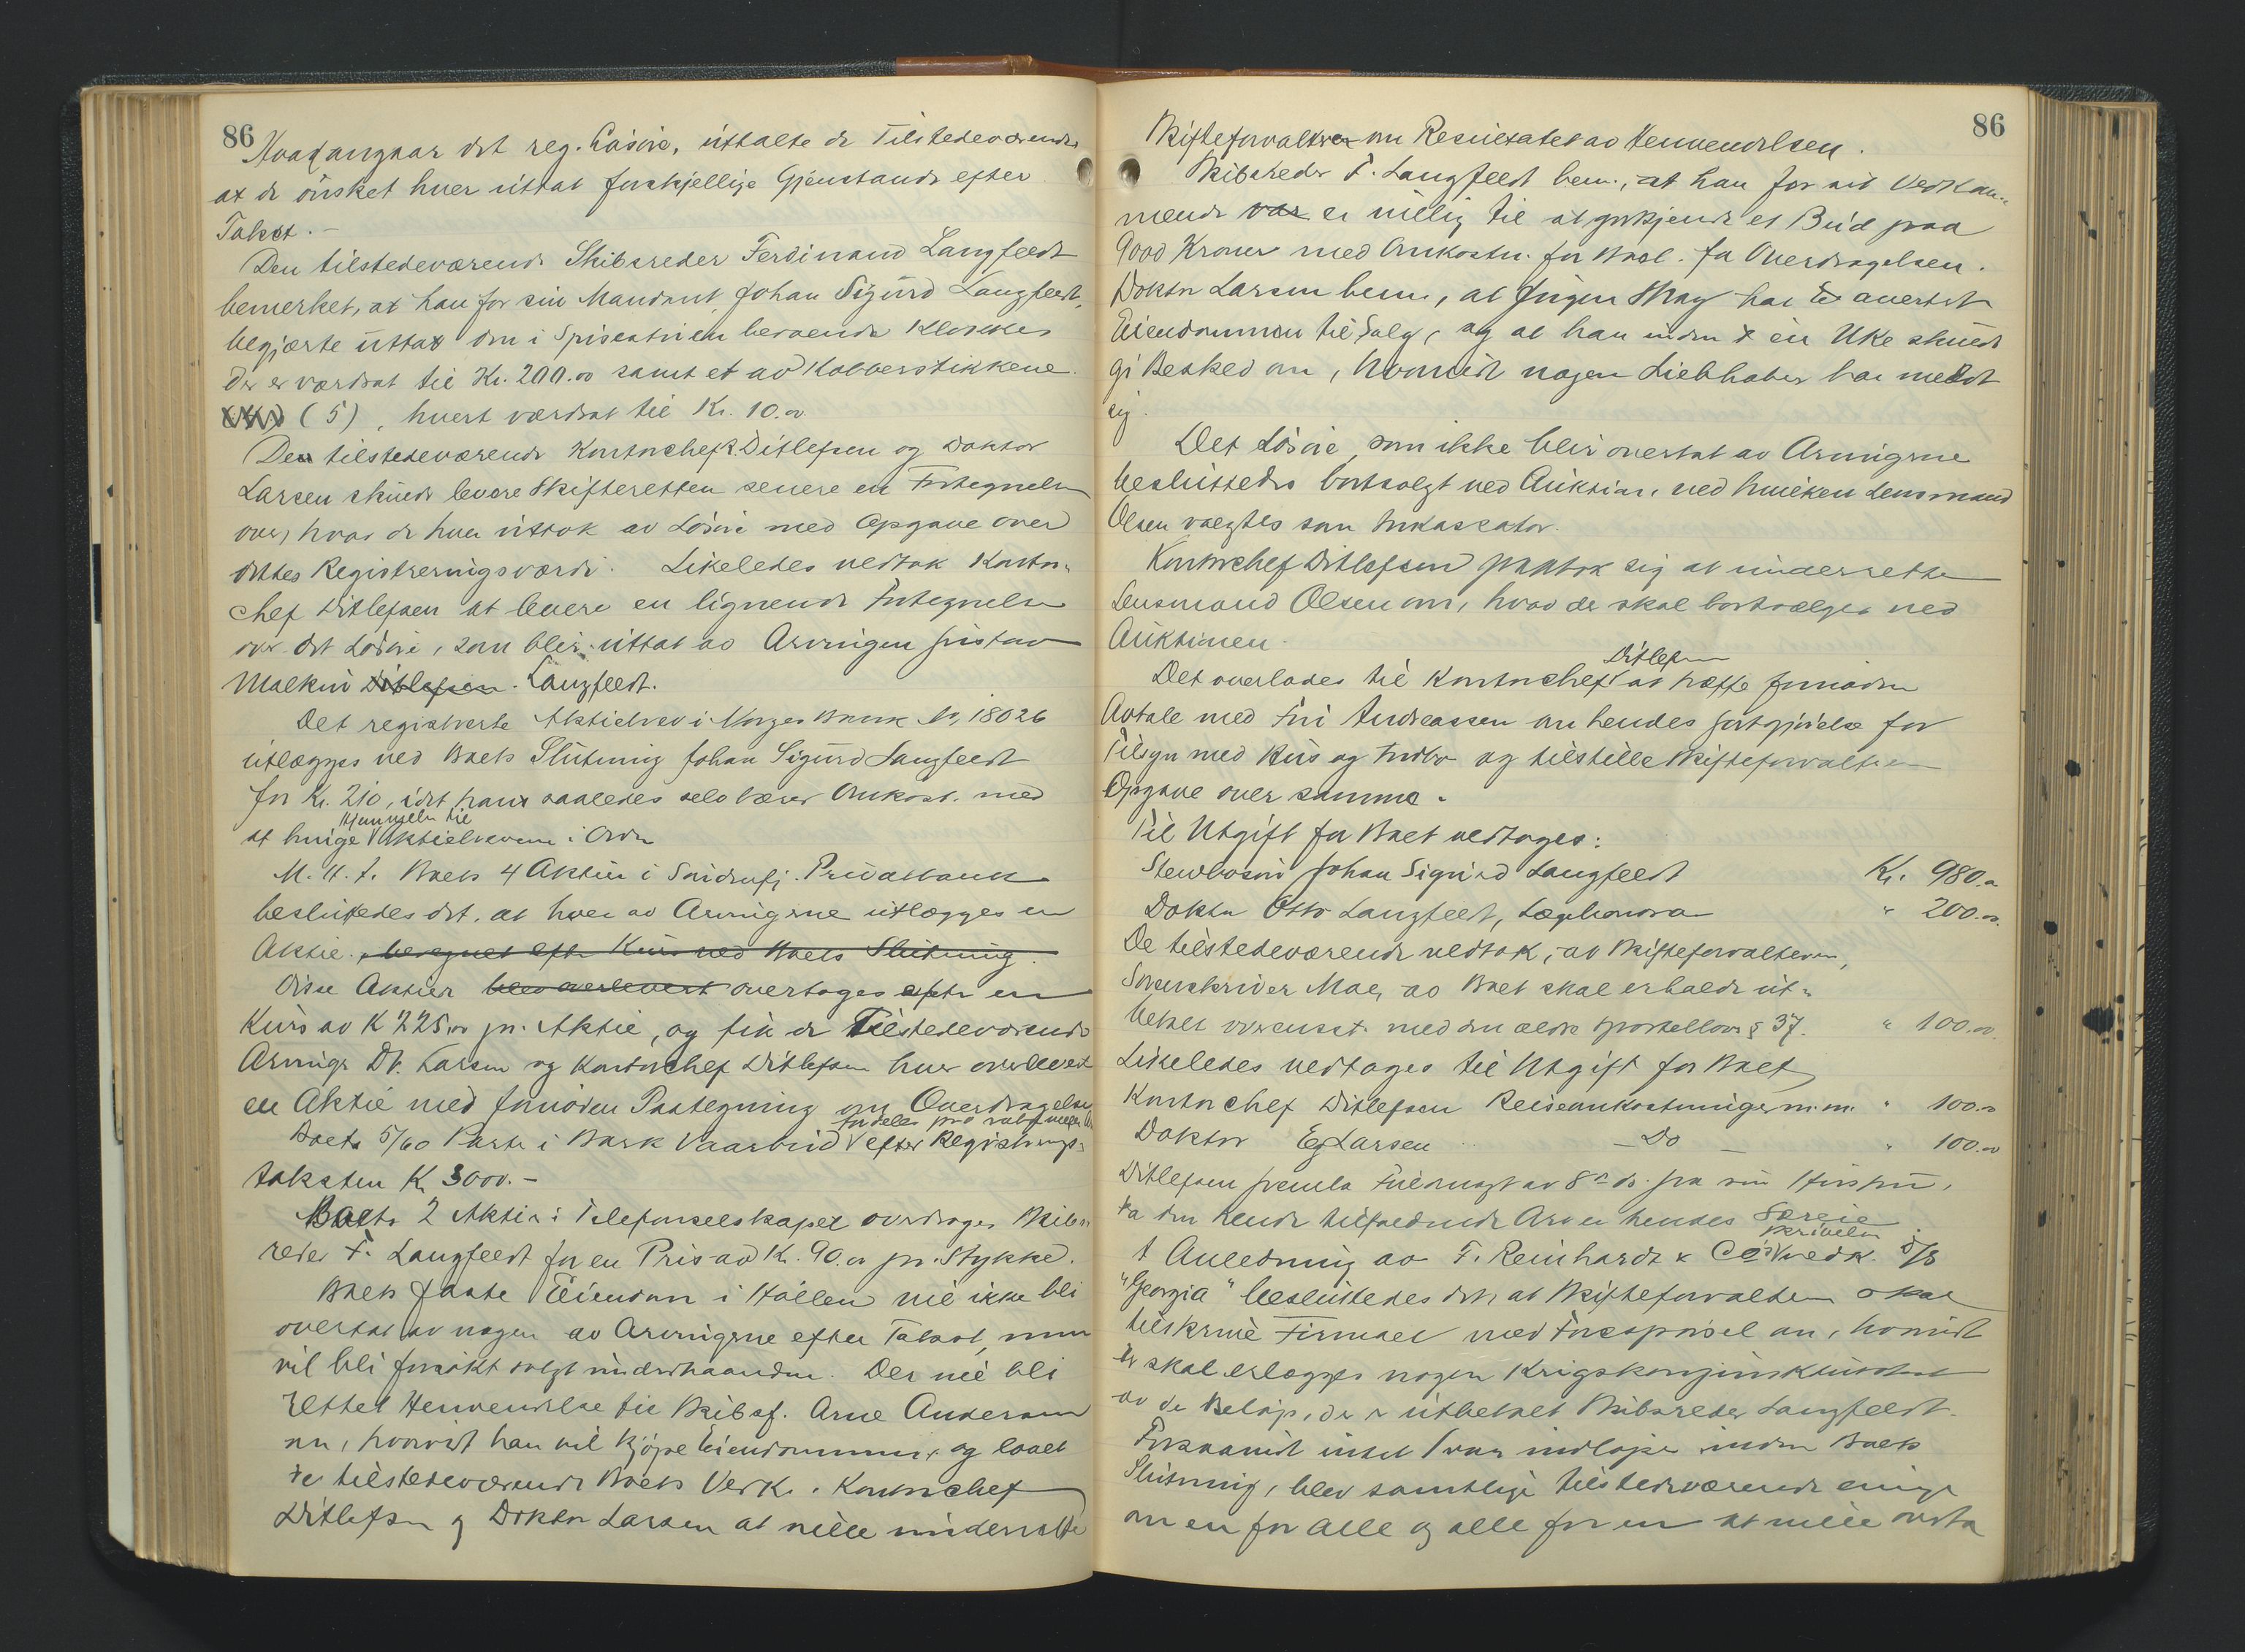 86
Hvad angaar det reg. Løsøre, uttalte de Tilstedeværende,
at de ønsket hver uttat forskjellige Gjenstande efter
Takst.-
Den tilstedeværende Skibsreder Ferdinand Langfeldt
bemerket, at han for sin Mandant, Johan Sigurd Langfeldt,
begjærte uttat den i Spisestuen beroende Klokke,
der er værdsat til Kr. 200.00 samt et av Kobberstikkene
(5), hvert værdsat til Kr. 10.00
Den tilstedeværende Kontorchef Ditlefsen og Doktor
Larsen skulde levere Skifteretten senere en Fortegnelse
over, hvad de hver uttok av Løsøre med Opgave over
dettes Registreringsværdi. Likeledes vedtok Kontor-
chef Ditlefsen at levere en lignende Fortegnelse
over det Løsøre, som blir uttat av Arvingen Gustav
Malkin Ditlefsen. Langfeldt.
Det registrerte Aktiebrev i Norges Bank No, 18026
utlægges ved Boets Slutning Johan Sigurd Langfeldt
for Kr. 210, idet han saaledes selv bærer Omkost. med
at bringe Hjemmelen til Aktiebrevene i Orden
M. H. t. Boets 4 Aktier i Søndenfj. Privatbank
besluttedes det, at hver av Arvingerne utlægges en
Aktie., beregnet efter Kurs ved Boets Slutning.
Disse Aktier blev overlevert overtages efter en
Kurs av K 225,00 pr. Aktie, og fik de Tilstedeværende
Arvinge Dr. Larsen og Kontorchef Ditlefsen hver overlevert
en Aktie med fornøden Paategning om Overdragelse
Boets 5/60 Parter i Bark Vaarbud fordeles pro rata efter Registrerings-
taksten K 3000.-
Boets 2 Aktier i Telefonselskapet overdrages Skibs-
reder F. Langfeldt for en Pris av Kr. 90.00 pr. Stykke.
Boets faste Eiendom i Hollen vil ikke bli
overtat av nogen av Arvingerne efter Takst, men
vil bli forsøkt solgt underhaanden. Der vil bli
rettet Henvendelse til Skibsf. Arne Andersen
om, hvorvidt han vil kjøpe Eiendommen, og lovet
de tilstedeværende Boets Vedk. Kontorchef
Ditlefsen og Doktor Larsen at ville underrette
86
Skifteforvalteren om Resultatet av Henvendelsen.
Skibsreder F. Langfeldt bem., at han for sit Vedkom-
mende var er villig til at godkjende et Bud paa
9000 Kroner med Omkostn. for Boet for Overdragelsen.
Doktor Larsen bem., at Jørgen Skag har avertert
Eiendommen til Salg, og at han inden en Uke skulde
gi Besked om, hvorvidt nogen Liebhaber har meldt
sig.
Det Løsøre, som ikke blir overtat av Arvingerne
besluttedes bortsolgt ved Auktion, ved hvilken Lensmand
Olsen valgtes som Inkassator.
Kontorchef Ditlefsen paatok sig at underrette
Lensmand Olsen om, hvad der skal bortsælges ved
Auktionen.
Det overlodes til Kontorchef Ditlefsen at træffe fornøden
Avtale med Fru Andreassen om hendes Godtgjørelse for
Tilsyn med Hus og Indbo og tilstille Skifteforvalteren
Opgave over samme.
Til Utgift for Boet vedtoges:
Johan Sigurd Langfeldt Kr. 980.00
Doktor Otto Langfeldt, Lægehonorar " 200.00
De tilstedeværende vedtok, at Skifteforvalteren,
Sorenskriver Moe, av Boet skal erholde ut-
betalt overensst. med den ældre Sportellovs § 37. " 100.00
Likeledes vedtoges til Utgift for Boet,
Kontorchef Ditlefsen Reiseomkostninger m.m. " 100.00
Doktor Eg Larsen - Do - " 100.00
Ditlefsen fremla Fuldmagt av 8 ds. fra sin Hustru,
da den hende tilfaldende Arv er hendes Særeie.
I Anledning av F. Reinhardt & Co's Skrivelse vedk. S/S
"Georgia" besluttedes det, at Skifteforvalteren skal
tilskrive Firmaet med Forespørsel om, hvorvidt
der skal erlægges nogen Krigskonjunkturskat
av de Beløp, der er utbetalt Skibsreder Langfeldt.
Forsaavidt intet Svar indløper inden Boets
Slutning, blev samtlige tilstedeværende enige
om en for alle og alle for en at ville overta